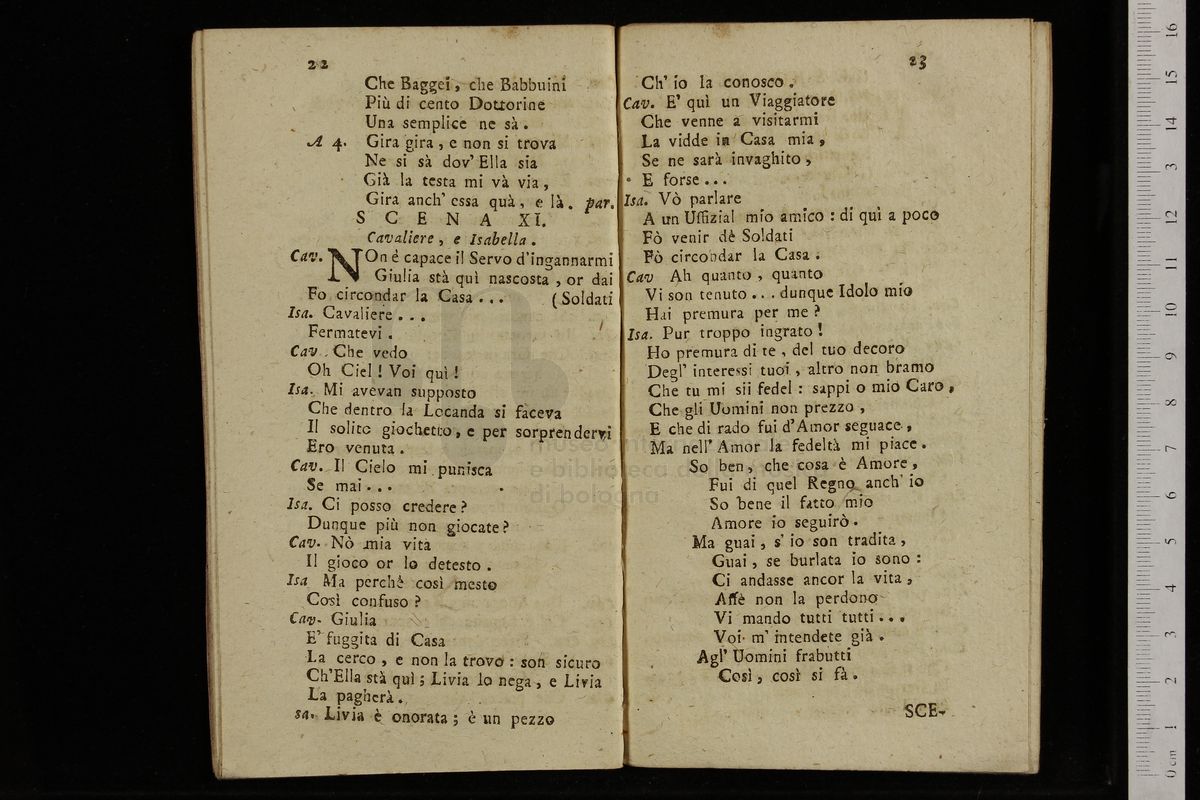 22
Che Baggei, che Babbuini
Più di cento Dottorine
Una semplice ne sà.
A 4. Gira gira, e non si trova
Ne si sà dov' Ella sia
Già la testa mi và via,
Gira anch' essa quà, e là. par.
SCENA XI.
Cavaliere, e Isabella.
Cav. NOn é capace il Servo d'ingannarmi
Giulia stà quì nascosta, or dai
Fo circondar la Casa... (Soldati
Isa. Cavaliere...
Fermatevi.
Cav. Che vedo
Oh Ciel! Voi quì!
Isa. Mi avevan supposto
Che dentro la Locanda si faceva
Il solito giochetto, e per sorprendervi
Ero venuta.
Cav. Il Cielo mi punisca
Se mai...
Isa. Ci posso credere?
Dunque più non giocate?
Cav. Nò mia vita
Il gioco or lo detesto.
Isa Ma perchè così mesto
Così confuso?
Cav. Giulia
E' fuggita di Casa
La cerco, e non la trovo: son sicuro
Ch'Ella stà quì; Livia lo nega, e Livia
La pagherà.
sa. Livia è onorata; è un pezzo
23
Ch' io la conosco.
Cav. E' quì un Viaggiatore
Che venne a visitarmi
La vidde in Casa mia,
Se ne sarà invaghito,
E forse...
Isa. Vò parlare
A un Uffizial mio amico: di quì a poco
Fò venir dè Soldati
Fò circondar la Casa.
Cav Ah quanto, quanto
Vi son tenuto... dunque Idolo mio
Hai premura per me?
Isa. Pur troppo ingrato!
Ho premura di te, del tuo decoro
Degl' interessi tuoi, altro non bramo
Che tu mi sii fedel: sappi o mio Caro,
Che gli Uomini non prezzo,
E che di rado fui d'Amor seguace,
Ma nell' Amor la fedeltà mi piace.
So ben, che cosa è Amore,
Fui di quel Regno anch' io
So bene il fatto mio
Amore io seguirò.
Ma guai, s' io son tradita,
Guai, se burlata io sono:
Ci andasse ancor la vita,
Affè non la perdono
Vi mando tutti tutti...
Voi m' intendete già.
Agl' Uomini frabutti
Così, così si fà.
SCE-
museo internazionale
e biblioteca della musica
di bologna
0 cm 1 2 3 4 5 6 7 8 9 10 11 12 13 14 15 16